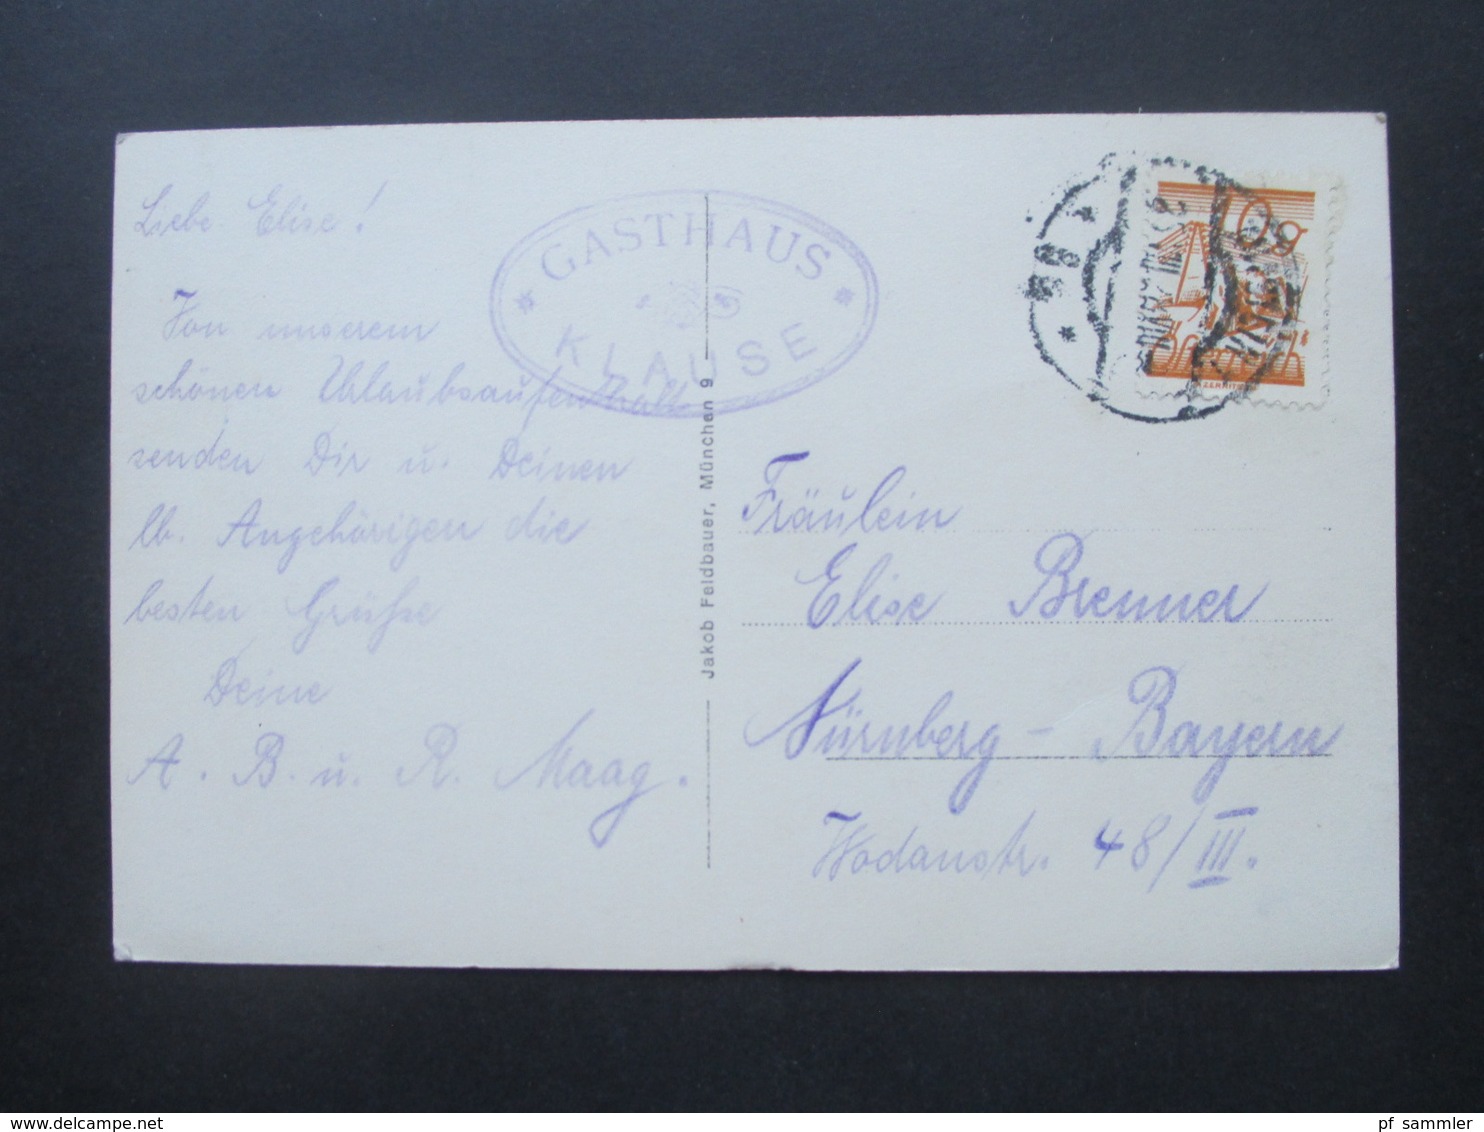 Liebe Elise!
Von unserem
schönen Urlaubsaufenthalt
senden Dir u. Deinen
lb. Angehörigen die
besten Grüße
Deine
A. B. u. R. Maag.
GASTHAUS
KLAUSE
Jakob Feldbauer, München 9
10g
Fräulein
Elise Brenner
Nürnberg - Bayern
Wodanstr. 48/III.
delcampe.net
pf_sammler